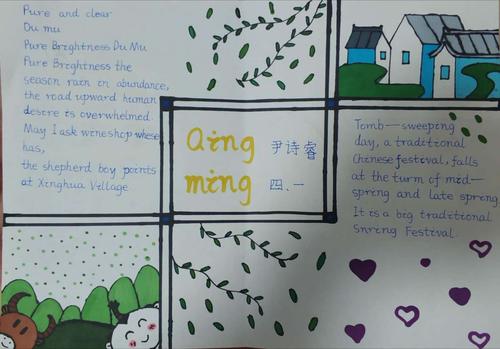 Pure and clear
Du mu
Pure Brightness Du Mu
Pure Brightness the
season rain in abundance,
the road upward human
desire is overwhelmed
May I ask wineshop where
has,
the shepherd boy points
at Xinghua Village
Qing
ming
尹诗睿
四、一
Tomb—sweeping
day, a traditional
Chinese festival, falls
at the turm of mid—
spring and late spring
It is a big traditional
Snring Festival.